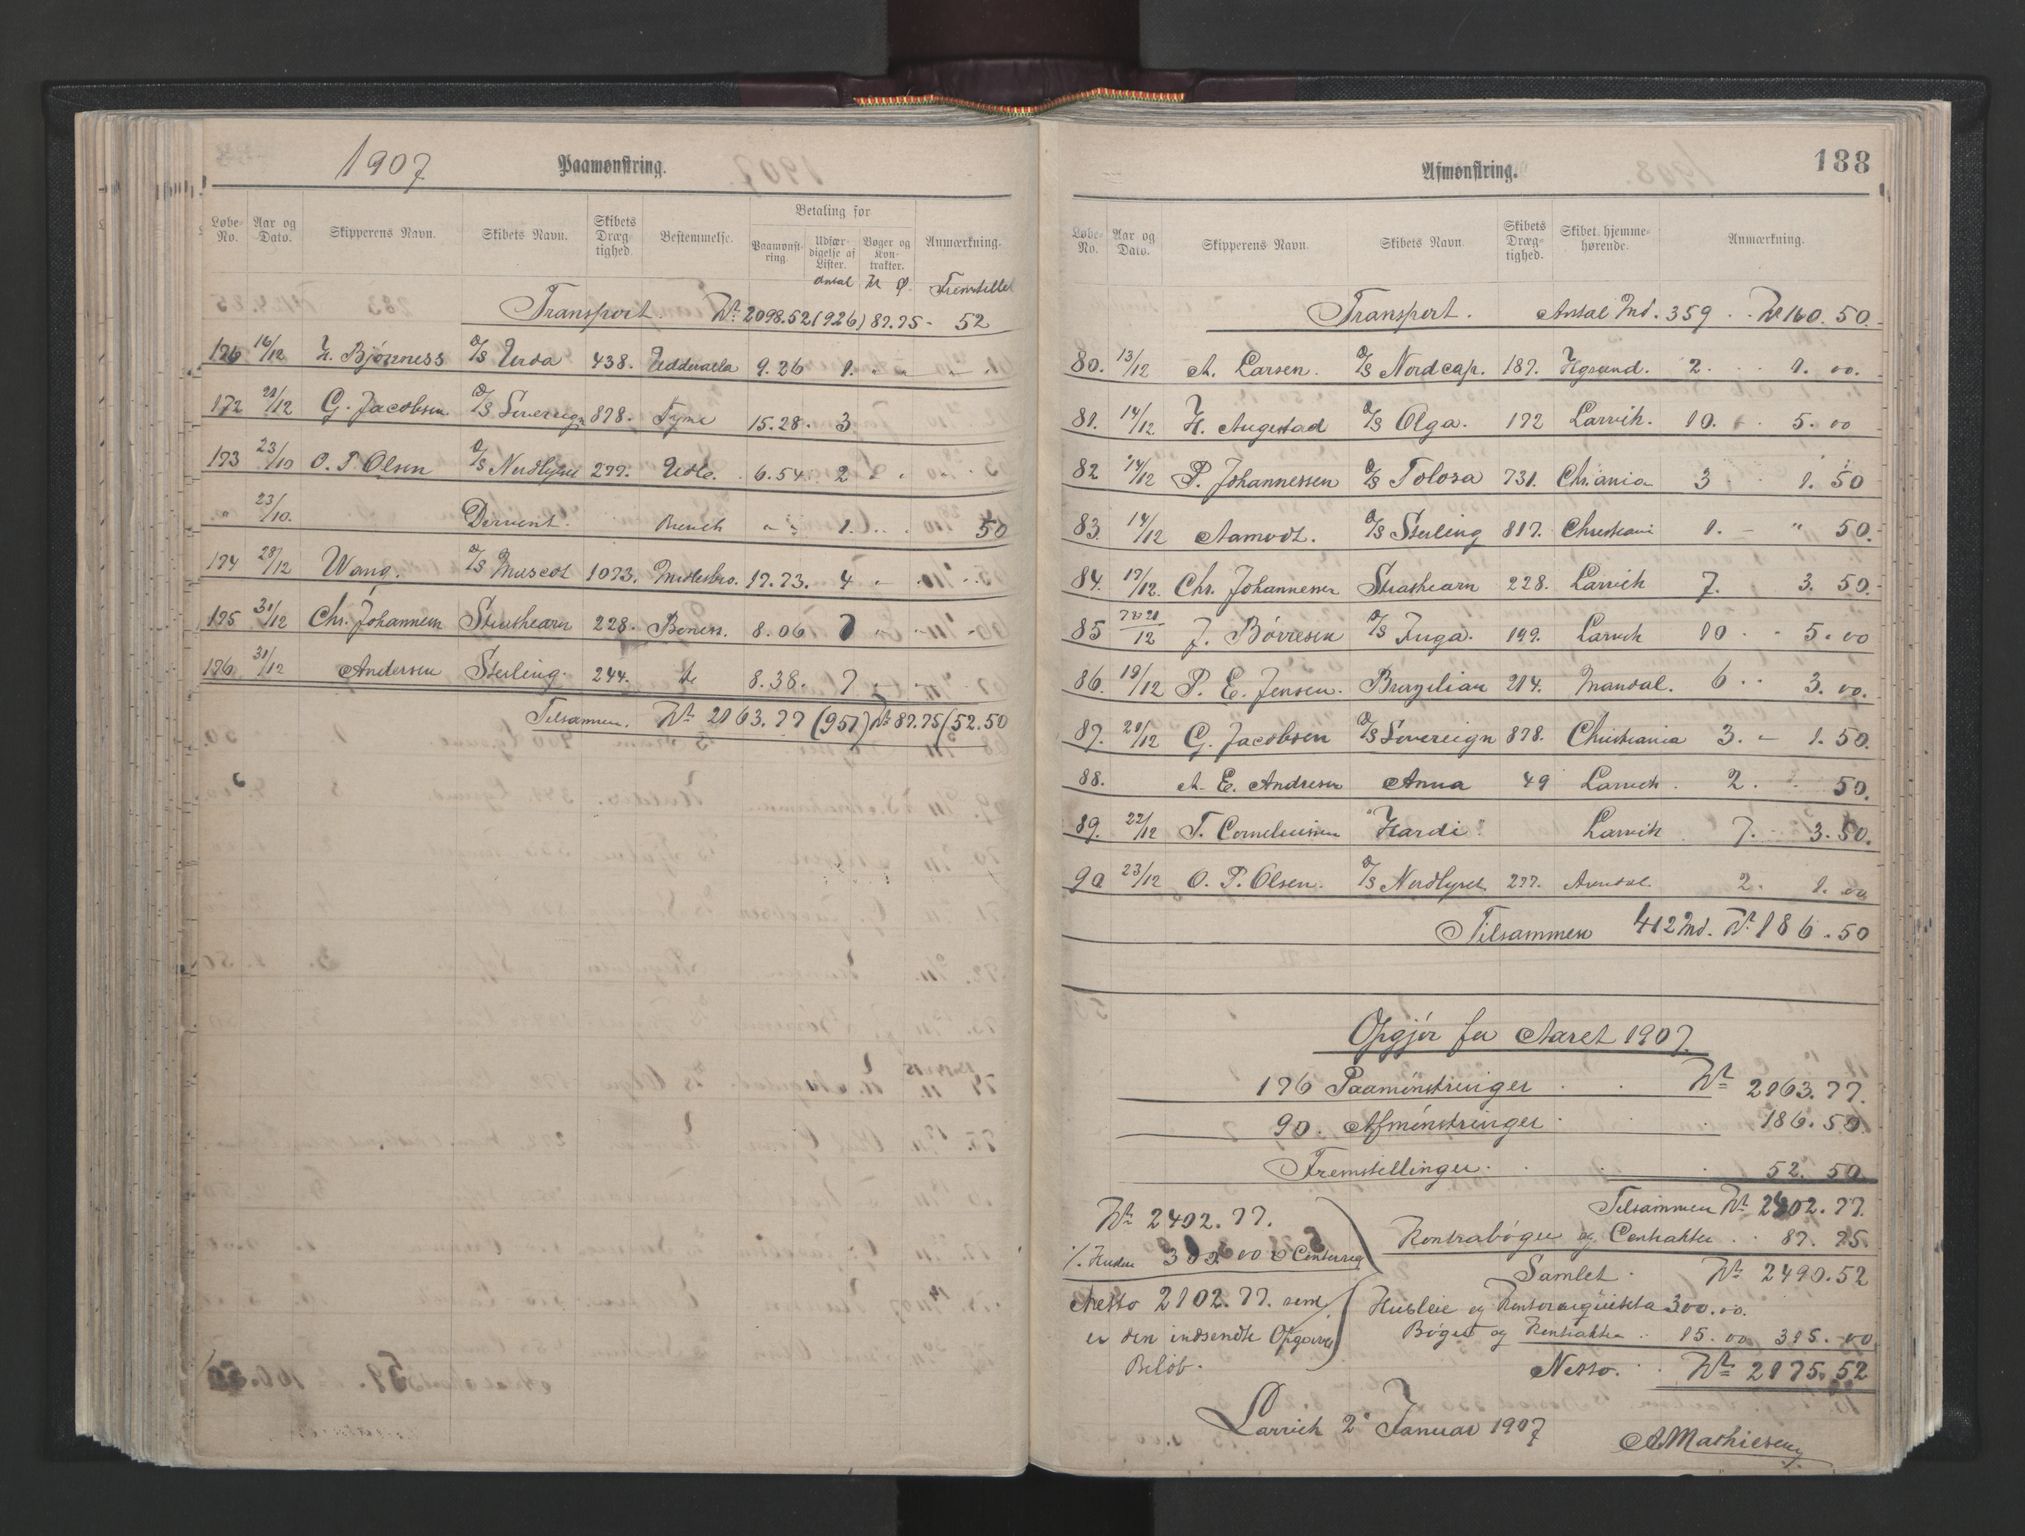 1907 Paamønstring.
Løbe-No. Aar og Dato. Skipperens Navn. Skibets Navn. Skibets Dræg-tighed. Bestemmelse. Betaling for Paamønst-ring. Udfær-digelse af Lister. Bøger og Kon-trakter. Anmærkning.
Antal Kr Ø. Fremstillet
Transport. Kr 2098.52 (926) 87.75 - 52
16/12 H. Bjønness A/S Urda 438. Uddevalla 9.26 1. " " - -
172 21/12 G. Jacobsen A/S Sovereign 878. Tyne 15.28. 3
173 23/10 O. P. Olsen A/S Nordlyset 277. Udl. 6.54. 2
" 23/10. Derwent. 1. 50
174 28/12 Wang. A/S Mascot 1073. Midlesbro. 17.73. 4
175 31/12 Chr. Johannesen Strathearn 228. Boness. 8.06 7
176 31/12 Andersen Sterling. 244. do 8.38. 7
Tilsammen. Kr 2163.77 (957) Kr 87.75 (52.50
Afmønstring. 188
Løbe-No. Aar og Dato. Skipperens Navn. Skibets Navn. Skibets Dræg-tighed. Skibet hjemme-hørende. Anmærkning.
Transport. Antal Md. 359 . . Kr 160. 50.
80. 13/12 A. Larsen. A/S Nordcap. 187. 2. 1. 00.
81. 14/12 H. Augestad A/S Olga. 172 Larvik. 10. 5. 00
82 14/12 P. Johannessen A/S Tolosa 731. Chr.ania 3 1. 50
83. 14/12 Aamodt. A/S Sterling 817. Christiania 1. - " 50.
84. 17/12. Chr. Johannessen Strathearn 228. Larvik 7. 3. 50.
85 12 J. Børresen A/S Juga. 199. Larvik 10 5. 00
86. 19/12 P. E. Jensen. Brazilian 214. Mandal. 6 3. 00.
87. 21/12 G. Jacobsen A/S Sovereign 878. Christiania 3. 1. 50.
88. A. E. Andresen Anna 49 Larvik. 2. 50.
89. 22/12 T. Corneliussen "Hardi". Larvik 7. 3. 50.
90 23/12 O. P. Olsen. A/S Nordlyset 277. Arendal. 2. 1. 00
Tilsammen 412 Md. Kr. 186.50
Opgjør for Aaret 1907.
176 Paamønstringer Kr 2163.77.
90. Afmønstringer 186.50.
Fremstillinger. 52. 50
Tilsammen Kr 2402.77.
Kontrabøger og Contrakter 87.75.
Samlet. Kr 2490.52
Kr 2402.77.
Netto 2102.77. som
er den indsendte Opgaves
Beløb.
Husleie og Kontorrequisita 300.00.
Bøger og Kontrakter 15.00 315.00
Netto. Kr 2175.52
Larvik 2 Januar 1907
A Mathiesen